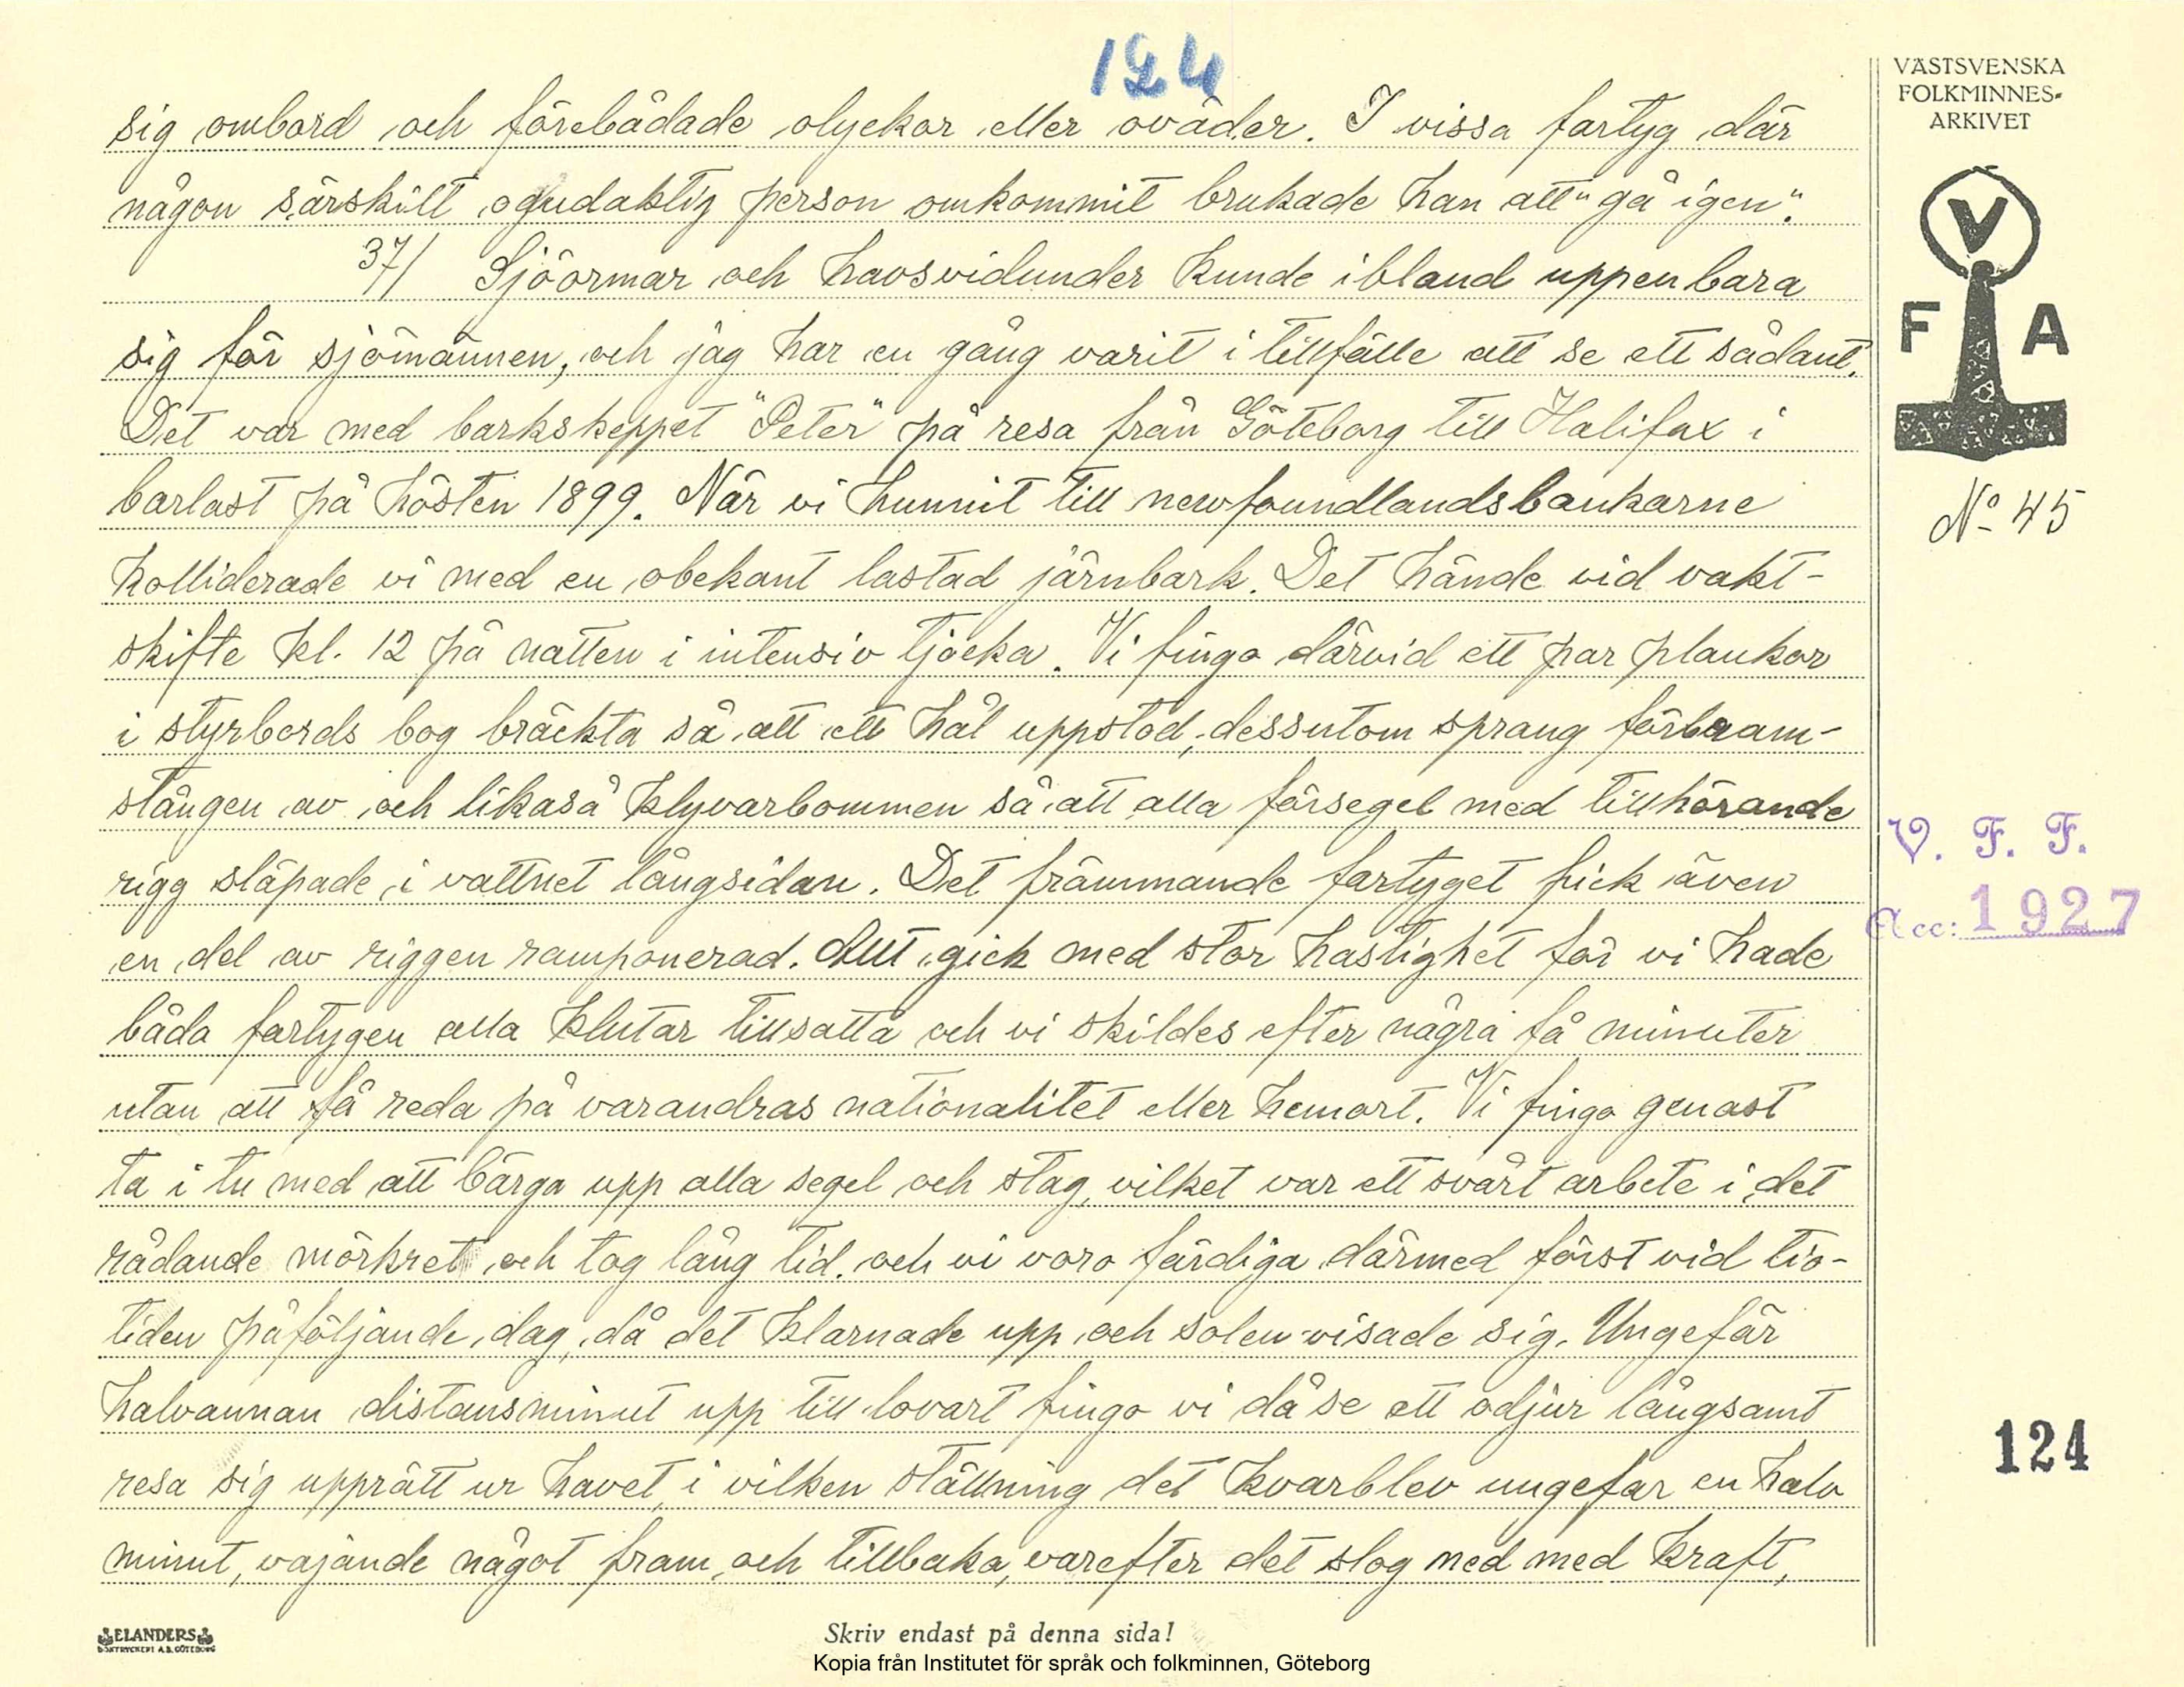 124
sig ombord och förebådade olyckor eller oväder. I vissa fartyg där
någon särskilt ogudaktig person omkommit brukade han att "gå igen".
37/ Sjöormar och havsvidunder kunde ibland uppenbara
sig för sjömännen, och jag har en gång varit i tillfälle att se ett sådant.
Det var med barkskeppet "Peter" på resa från Göteborg till Halifax i
barlast på hösten 1899. När vi hunnit till newfoundlandsbankarne
kolliderade vi med en obekant lastad järnbark. Det hände vid vakt-
skifte kl. 12 på natten i intensiv tjocka. Vi fingo därvid ett par plankor
i styrbords bog bräckta så att ett hål uppstod, dessutom sprang förbram-
stången av och likaså klyvarbommen så att alla försegel med tillhörande
rigg släpade i vattnet långsidan. Det främmande fartyget fick även
en del av riggen ramponerad. Allt gick med stor hastighet för vi hade
båda fartygen alla klutar tillsatta och vi skildes efter några få minuter
utan att få reda på varandras nationalitet eller hemort. Vi fingo genast
ta i tu med att bärga upp alla segel och stag, vilket var ett svårt arbete i det
rådande mörkret och tog lång tid. och vi voro färdiga därmed först vid tio-
tiden påföljande dag, då det klarnade upp och solen visade sig. Ungefär
halvannan distansminut upp till lovart fingo vi då se ett odjur långsamt
resa sig upprätt ur havet, i vilken ställning det kvarblev ungefär en halv
minut, vajande något fram och tillbaka, varefter det slog ned med kraft,
VÄSTSVENSKA
FOLKMINNES-
ARKIVET
V
F A
No 45
V. F. F.
Acc: 1927
124
ELANDERS
BOKTRYCKERI A.B. GÖTEBORG
Skriv endast på denna sida!
Kopia från Institutet för språk och folkminnen, Göteborg